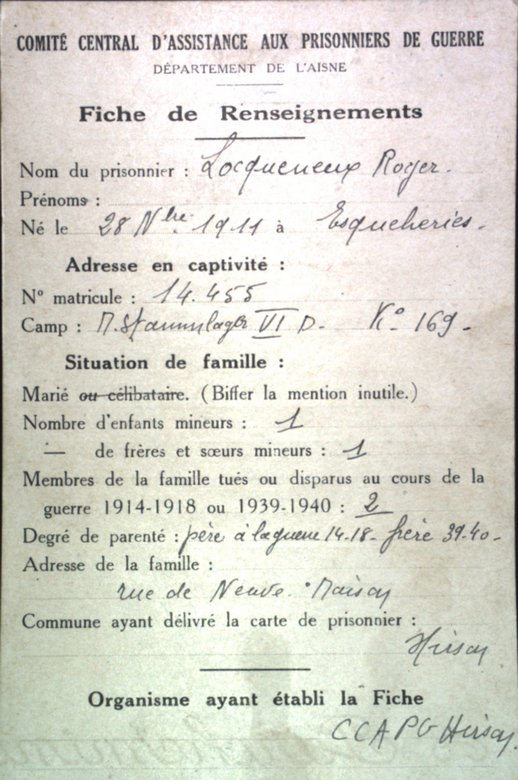 COMITÉ CENTRAL D'ASSISTANCE AUX PRISONNIERS DE GUERRE
DÉPARTEMENT DE L'AISNE
Fiche de Renseignements
Nom du prisonnier : Locqueneux Roger.
Prénoms :
Né le 28 Nbre 1911 à Esqueheries.
Adresse en captivité :
N° matricule : 14.455
Camp : M. Stammlager VI D. Ko 169.
Situation de famille :
Marié ou célibataire. (Biffer la mention inutile.)
Nombre d'enfants mineurs : 1
— de frères et sœurs mineurs : 1
Membres de la famille tués ou disparus au cours de la
guerre 1914-1918 ou 1939-1940 : 2
Degré de parenté : père à la guerre 14-18 - frère 39-40 -
Adresse de la famille :
rue de Neuve Maison
Commune ayant délivré la carte de prisonnier :
Hirson
Organisme ayant établi la Fiche
CCAPG Hirson